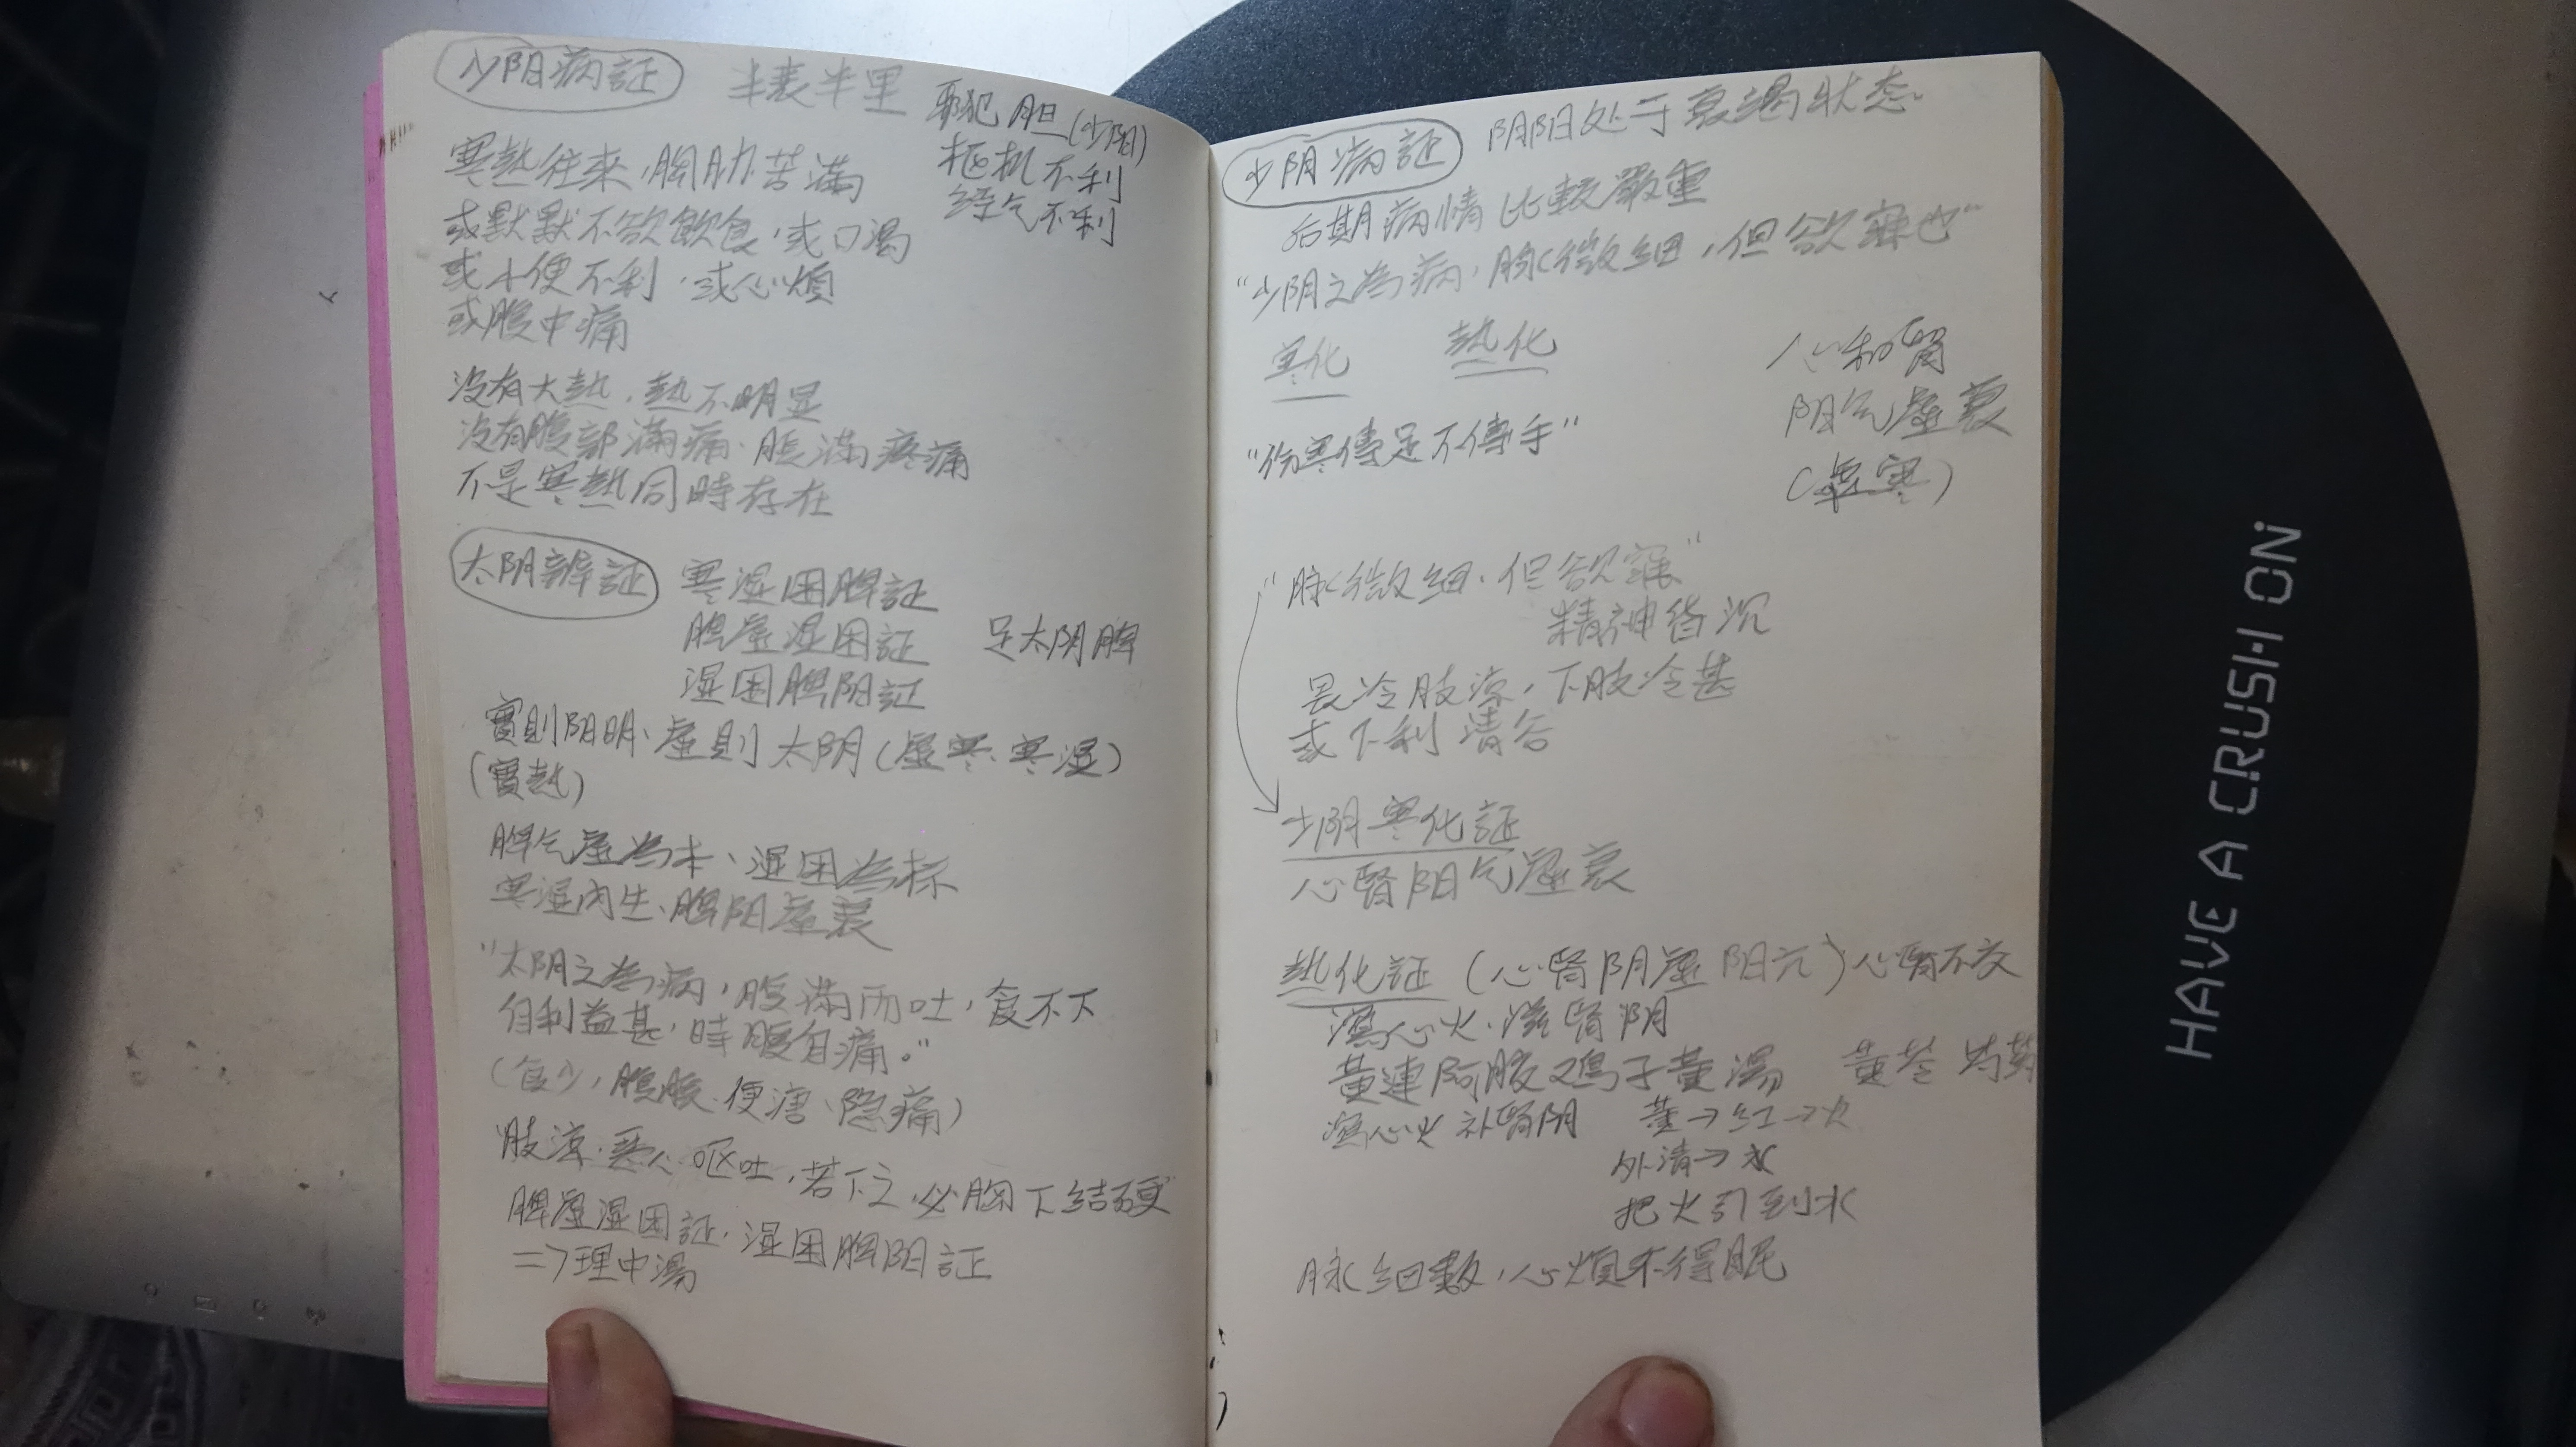 少阳病証
半表半里
邪犯胆(少阳)
枢机不利
经气不利
寒熱往来,胸肋苦滿
或默默不欲飲食,或口渴
或小便不利,或心煩
或腹中痛
没有大熱,熱不明显
没有腹部滿痛、腹滿疼痛
不是寒熱同時存在
太阴辨証
寒湿困脾証
脾虛湿困証
足太阴脾
湿困脾阳証
實則阳明、虛則太阴(虛寒、寒湿)
(實熱)
脾气虛為本、湿困為标
寒湿内生、脾阳虛衰
"太阴之為病,腹滿而吐,食不下
自利益甚,時腹自痛。"
(食少,腹脹、便溏、隐痛)
肢凉、恶心呕吐,若下之,必胸下结硬"
脾虛湿困証,湿困脾阳証
=>理中湯
少阴病証
阴阳处于衰竭状态
后期病情比較嚴重
"少阴之為病,脉微细,但欲寐也"
寒化
熱化
心和腎
阳气虛衰
(虛寒)
"伤寒傳足不傳手"
"脉微细、但欲寐"
精神昏沉
畏冷肢凉,下肢冷甚
或下利清谷
少阴寒化証
心腎阳气虛衰
熱化証(心腎阴虛阳亢)心腎不交
瀉心火、滋腎阴
黃連阿胶鸡子黃湯
黃芩
瀉心火 补腎阴
黃→红→火
外清→水
把火引到水
脉细数,心煩不得眠
HAVE A CRUSH ON